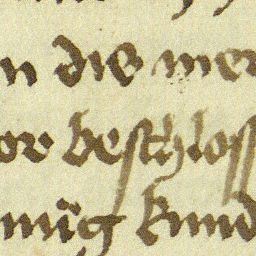 n die mer
or beschloss
nnig kund